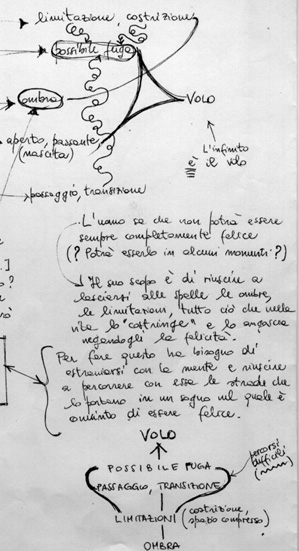 limitazione, costrizione
possibile fuga
ombra
VOLO
aperto, passante,
(nascita)
L'infinito
è il volo
passaggio, transizione
L'uomo sa che non potrà essere
sempre completamente felice
(? Potrà esserlo in alcuni momenti?)
Il suo scopo è di riuscire a
lasciarsi alle spalle le ombre,
le limitazioni, tutto ciò che nella
vita lo "costringe" e lo angoscia
negandogli la felicità.
Per fare questo ha bisogno di
estraniarsi con la mente e riuscire
a percorrere con essa le strade che
lo portano in un sogno nel quale è
convinto di essere felice.
VOLO
POSSIBILE FUGA
percorsi
difficili
PASSAGGIO, TRANSIZIONE
LIMITAZIONI (costrizione,
spazio compresso)
OMBRA